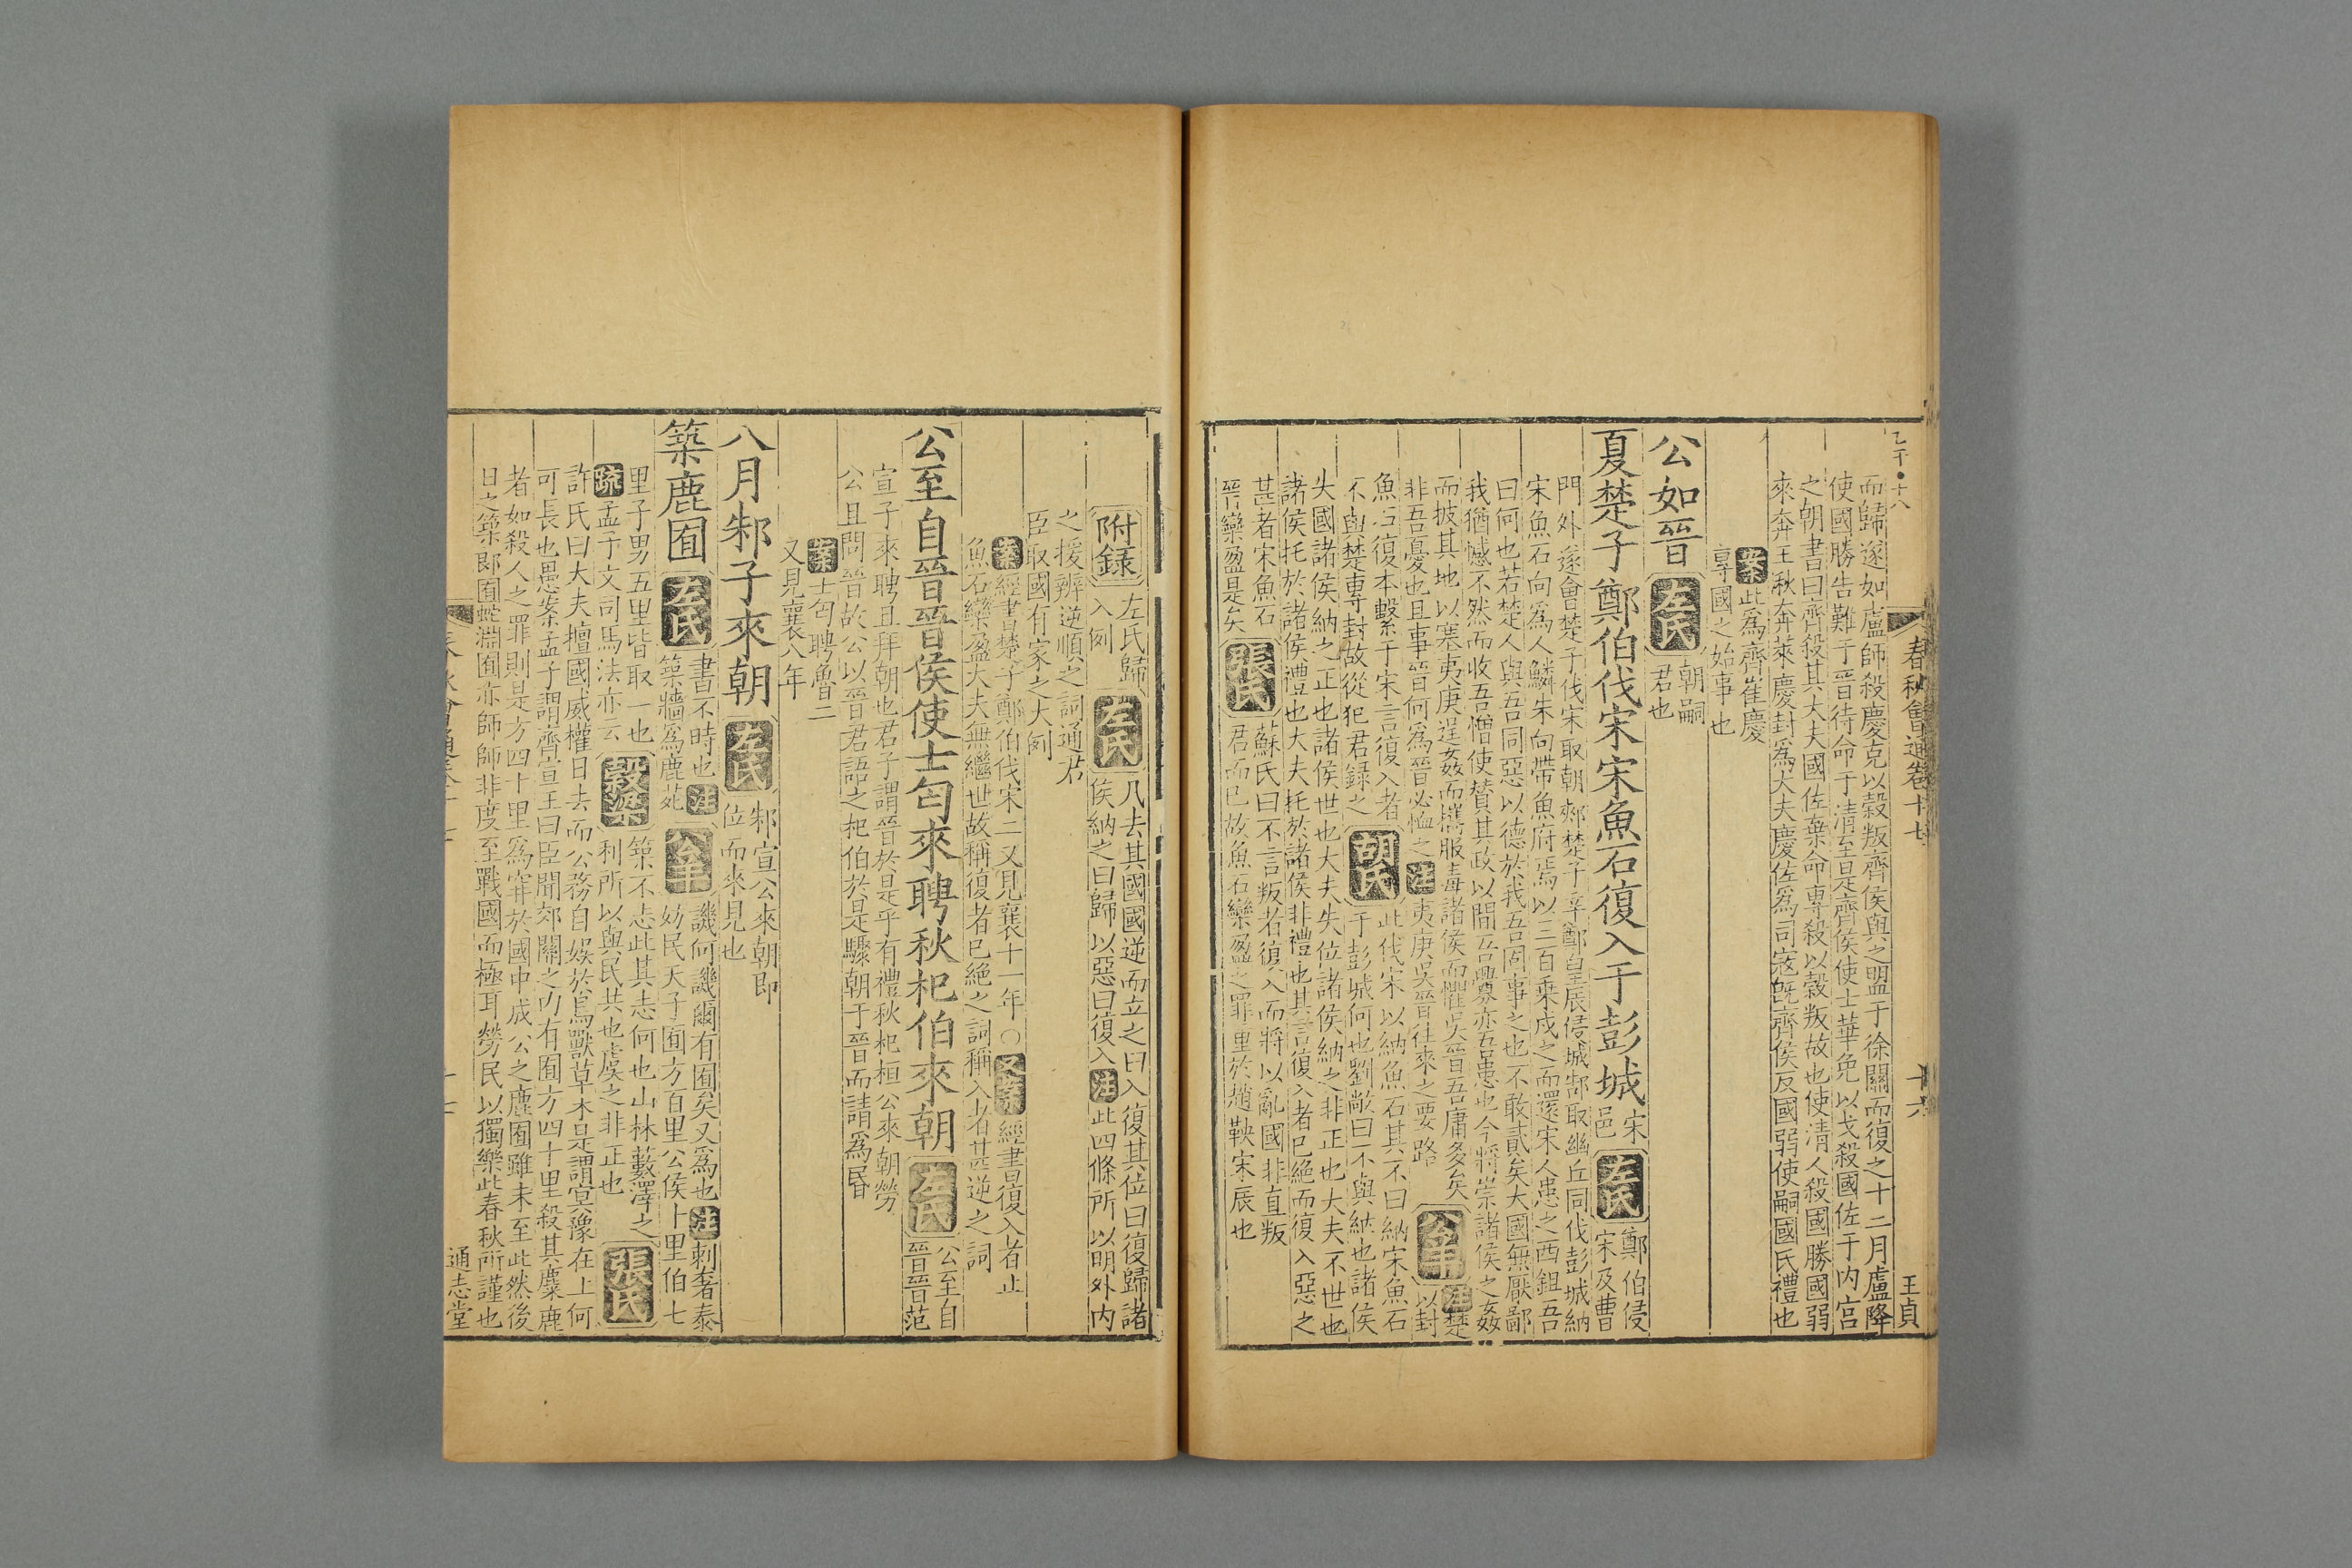 春秋會通卷十七
十六
王貞
而歸遂如盧師殺慶克以穀叛齊侯與之盟于徐關而復之十二月盧降
使國勝告難于晉待命于清至是齊侯使士華免以戈殺國佐于内宫
之朝書曰齊殺其大夫國佐棄命專殺以穀叛故也使清人殺國勝國弱
來奔王湫奔萊慶封爲大夫慶佐爲司寇旣齊侯反國弱使嗣國氏禮也
案此爲齊崔慶
專國之始事也
公如晉左氏朝嗣
君也
夏楚子鄭伯伐宋宋魚石復入于彭城宋
邑左氏鄭伯侵
宋及曹
門外遂會楚子伐宋取朝郟楚子辛鄭皇辰侵城郜取幽丘同伐彭城納
宋魚石向爲人鱗朱向帶魚府焉以三百乗戍之而還宋人患之西鉏吾
曰何也若楚人與吾同惡以德於我吾固事之也不敢貳矣大國無厭鄙
我猶憾不然而收吾憎使贊其政以間吾釁亦吾患也今將崇諸侯之姦
而披其地以塞夷庚逞姦而攜服毒諸侯而懼吳晉吾庸多矣
非吾憂也且事晉何爲晉必恤之注夷庚吳晉往來之要路公羊注楚
以封
魚石復本繫于宋言復入者
不與楚專封故從犯君録之胡氏此伐宋以納魚石其不曰納宋魚石
于彭城何也劉敞曰不與納也諸侯
失國諸侯納之正也諸侯世也大夫失位諸侯納之非正也大夫不世也
諸侯托於諸侯禮也大夫托於諸侯非禮也其言復入者已絶而復入惡之
甚者宋魚石
晉欒盈是矣張氏蘇氏曰不言叛者復入而將以亂國非直叛
君而已故魚石欒盈之罪里於趙鞅宋辰也
附録左氏歸
入例左氏凡去其國國逆而立之曰入復其位曰復歸諸
侯納之曰歸以惡曰復入注此四條所以明外内
之援辨逆順之詞通君
臣取國有家之大例
案經書楚子鄭伯伐宋二又見襄十一年○又案經書復入者止
魚石欒盈大夫無繼世故稱復者已絶之詞稱入者甘逆之詞
公至自晉晉侯使士匄來聘秋杞伯來朝左氏公至自
晉晉范
宣子來聘且拜朝也君子謂晉於是乎有禮秋杞桓公來朝勞
公且問晉故公以晉君語之杞伯於是驟朝于晉而請爲昏
案士匄聘魯二
又見襄八年
八月邾子來朝左氏邾宣公來朝即
位而來見也
築鹿囿左氏書不時也注
築牆爲鹿苑公羊譏何譏爾有囿矣又爲也注刺奢泰
妨民天子囿方百里公侯十里伯七
里子男五里皆取一也
疏孟子文司馬法亦云穀梁築不志此其志何也山林藪澤之
利所以與民共也虞之非正也張氏
許氏曰大夫擅國威權日去而公務自娱於鳥獸草木是謂冥豫在上何
可長也愚案孟子謂齊宣王曰臣聞郊關之内有囿方四十里殺其麋鹿
者如殺人之罪則是方四十里爲穽於國中成公之鹿囿雖未至此然後
日之築郎囿蛇淵囿亦師師非度至戰國而極耳勞民以獨樂此春秋所謹也
通志堂